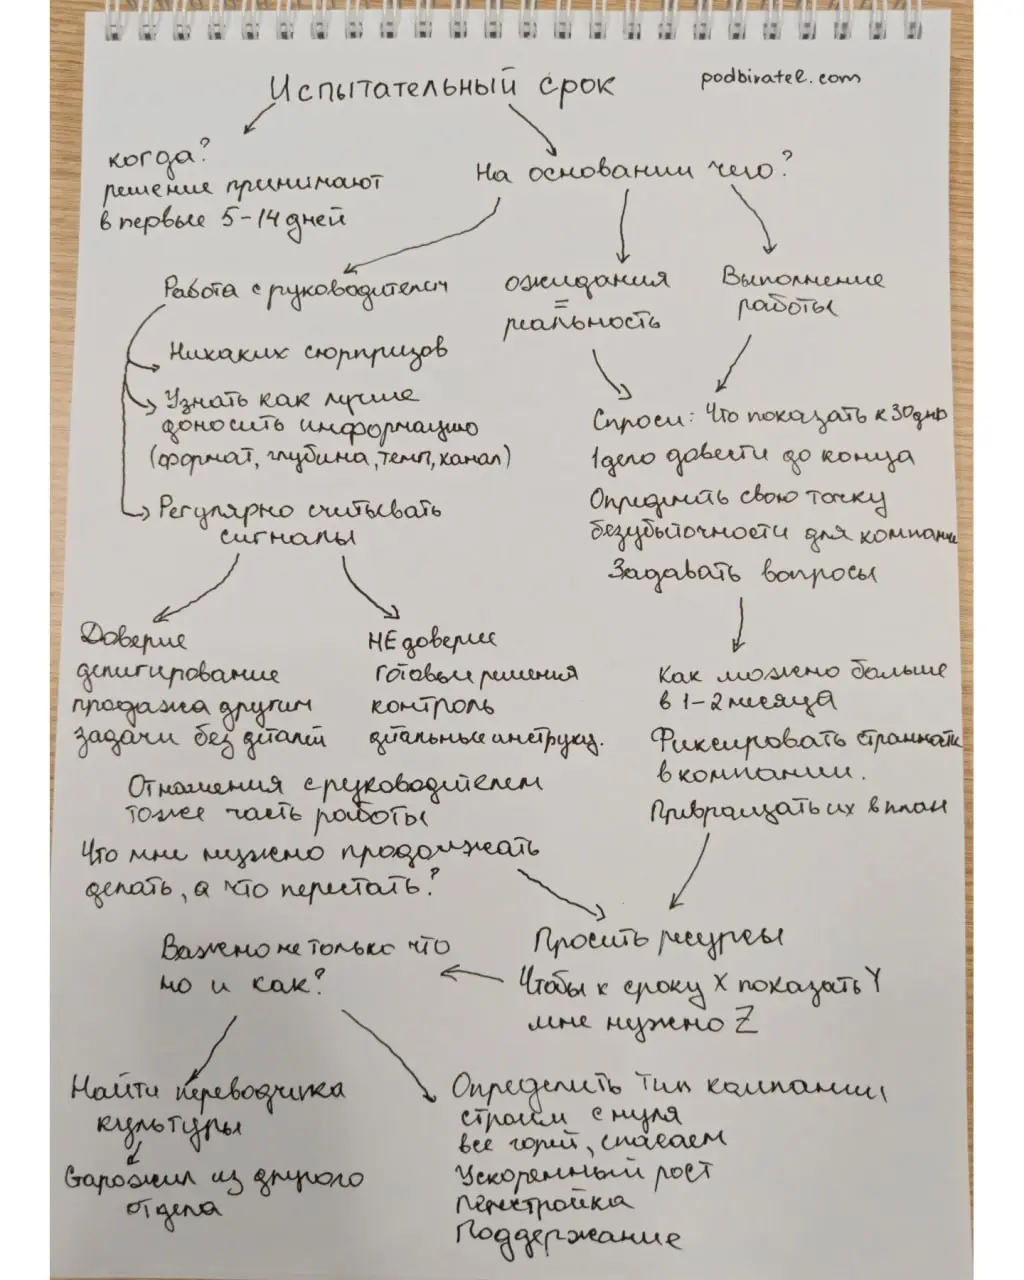 Испытательный срок
podbiratel.com
когда?
решение принимают
в первые 5-14 дней
На основании чего?
Работа с руководителем
ожидания
=
реальность
Выполнение
работы
Никаких сюрпризов
Узнать как лучше
доносить информацию
(формат, глубина, темп, канал)
Регулярно считывать
сигналы
Спроси: Что показать к 30 дню
1 дело довести до конца
Определить свою точку
безубыточности для компании
Задавать вопросы
Доверие
делигирование
продажа другим
задачи без деталей
НЕдоверие
готовые решения
контроль
детальные инструкц.
Как можно больше
в 1-2 месяца
Фиксировать странности
в компании.
Превращать их в план
Отношения с руководителем
тоже часть работы
Что мне нужно продолжать
делать, а что перестать?
Просить ресурсы
Чтобы к сроку X показать Y
мне нужно Z
Важно не только что
но и как?
Найти переводчика
культуры
Старожил из другого
отдела
Определить тип компании
строим с нуля
все горит, спасаем
Ускоренный рост
Перестройка
Поддержание